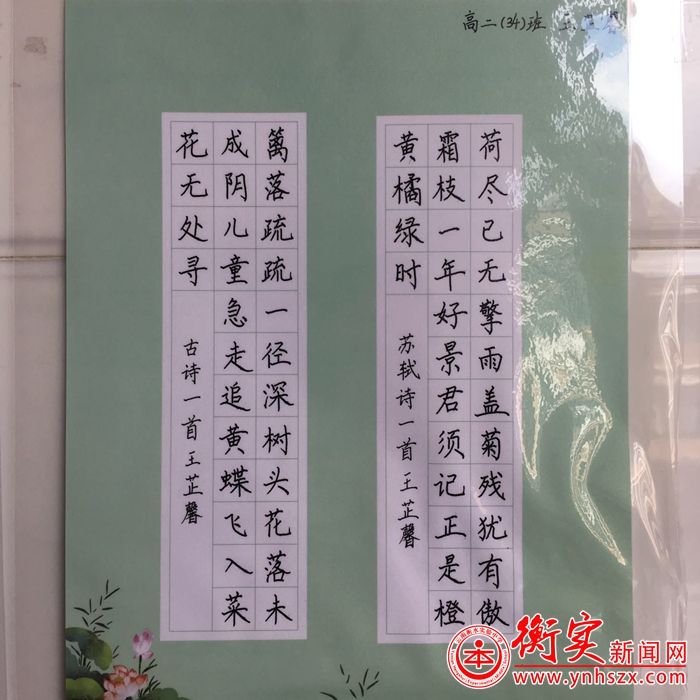 高二(34)班 王芷馨
荷尽已无擎雨盖菊残犹有傲
霜枝一年好景君须记正是橙
黄橘绿时
苏轼诗一首 王芷馨
篱落疏疏一径深树头花落未
成阴儿童急走追黄蝶飞入菜
花无处寻
古诗一首 王芷馨
衡实新闻网
www.ynhszx.com